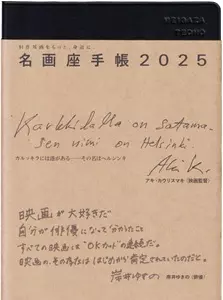 MEIGAZA
TECHO
旧作邦画をもっと、身近に。
名画座手帳2025
Karkkidalla on satama.
sen nimi on Helsinki.
Aki K.
カルッキラには港がある——その名はヘルシンキ
アキ・カウリスマキ（映画監督）
映画が大好きだ
自分が俳優になって分かったこと
すべての映画は"OKカット"の連続だ。
映画の、その存在ははじめから肯定されていたのだと。
岸井ゆきの（俳優）